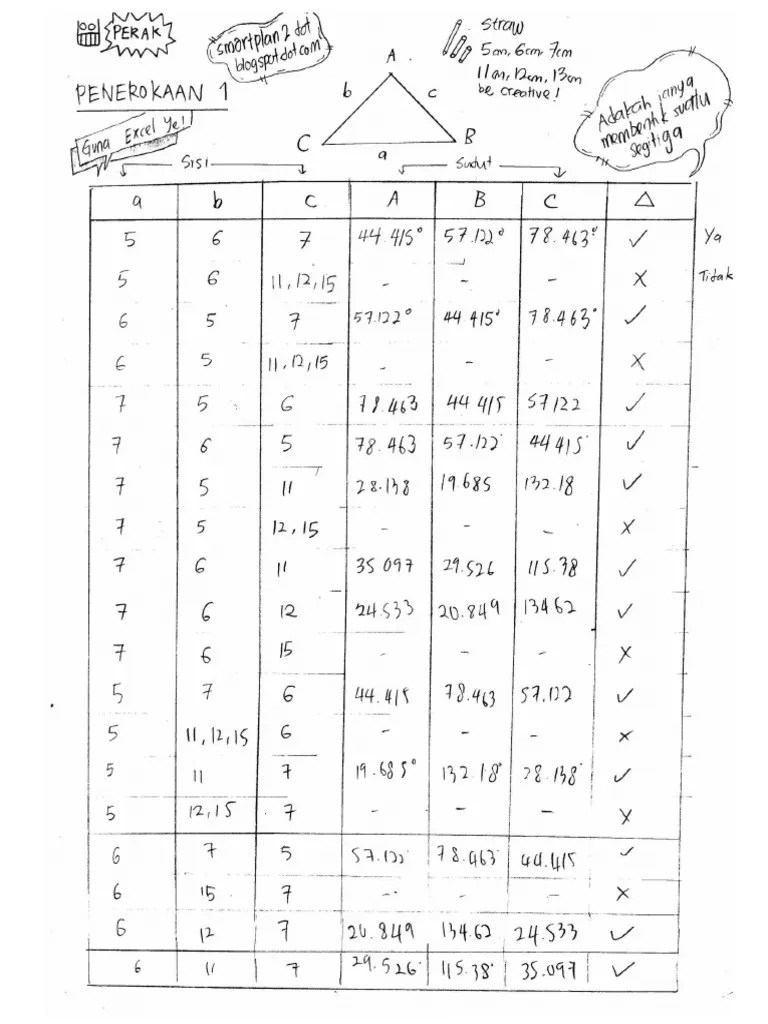 PERAK
smartplan2 dot
blogspot dot com
Straw
5cm, 6cm, 7cm
11cm, 12cm, 13cm
be creative!
PENEROKAAN 1
Guna Excel Ye!!
A
b c
C B
a
Adakah ianya
membentuk suatu
segitiga
Sisi Sudut
a b c A B C △
5 6 7 44.415° 57.122° 78.463° ✓ Ya
5 6 11,12,15 - - - X Tidak
6 5 7 57.122° 44 415° 78.463° ✓
6 5 11,12,15 - - - X
7 5 6 78.463 44 415 57122 ✓
7 6 5 78.463 57.122° 44415° ✓
7 5 11 28.138 19.685 132.18 ✓
7 5 12,15 - - - X
7 6 11 35 097 29.526 115.38 ✓
7 6 12 24.533 20.849 13462 ✓
7 6 15 - - - X
5 7 6 44.415 78.463 57.122 ✓
5 11,12,15 6 - - - X
5 11 7 19.685° 132.18° 28.138° ✓
5 12,15 7 - - - X
6 7 5 57.122 78.463° 44.415 ✓
6 15 7 - - - X
6 12 7 20.849 134.62 24.533 ✓
6 11 7 29.526° 115.38° 35.097 ✓